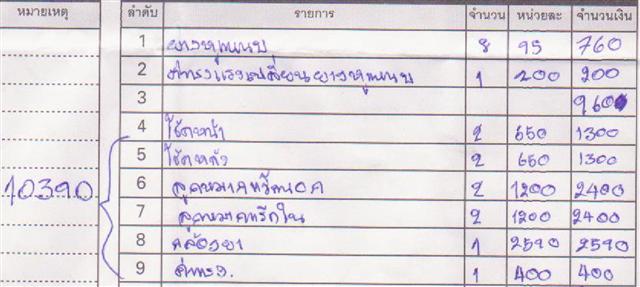 หมายเหตุ ลำดับ รายการ จำนวน หน่วยละ จำนวนเงิน
1 ยางหูแหนบ 8 95 760
2 ค่าแรงเปลี่ยนยางหูแหนบ 1 200 200
3 960
4 โช้คหน้า 2 650 1300
5 โช้คหลัง 2 650 1300
10390
6 ลูกหมาก 2 1200 2400
7 ลูกหมาก 2 1200 2400
8 1 2590 2590
9 ค่าแรง. 1 400 400